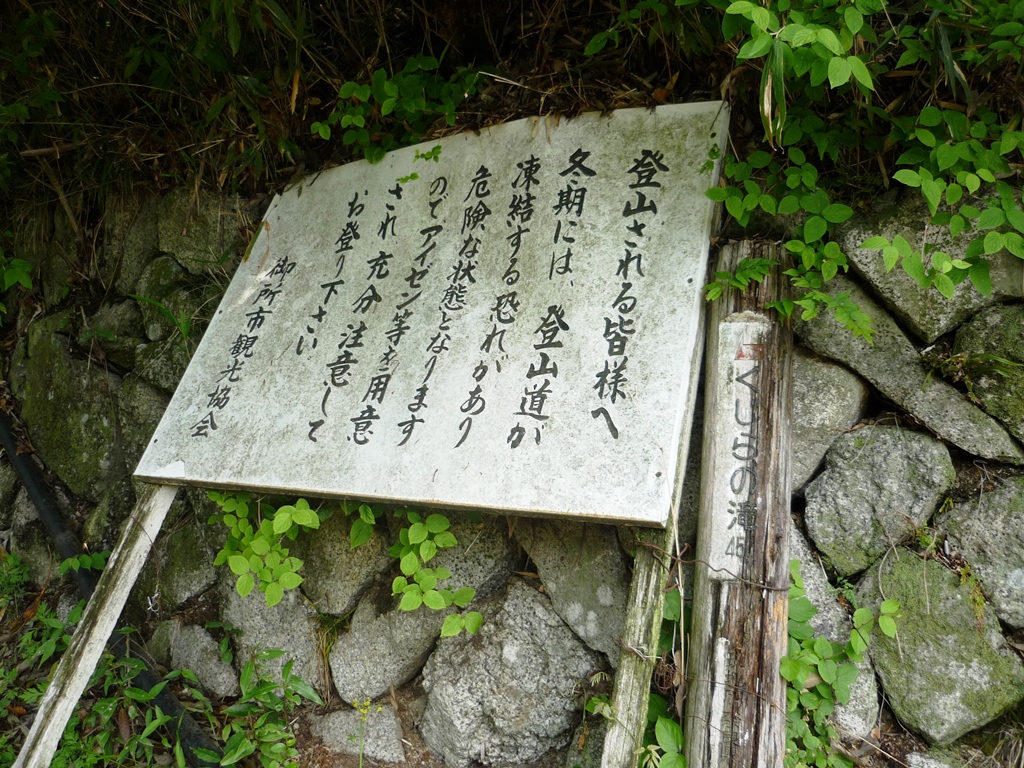 登山される皆様へ
冬期には、登山道が
凍結する恐れがあり
危険な状態となります
のでアイゼン等を用意
され充分注意して
お登り下さい
御所市観光協会
くじらの滝
45